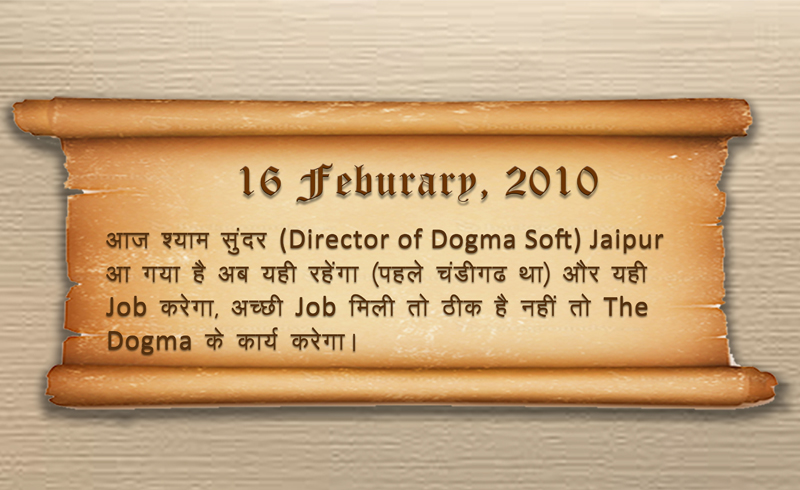 16 Feburary, 2010
आज श्याम सुंदर (Director of Dogma Soft) Jaipur
आ गया है अब यही रहेंगा (पहले चंडीगढ था) और यही
Job करेगा, अच्छी Job मिली तो ठीक है नहीं तो The
Dogma के कार्य करेगा।